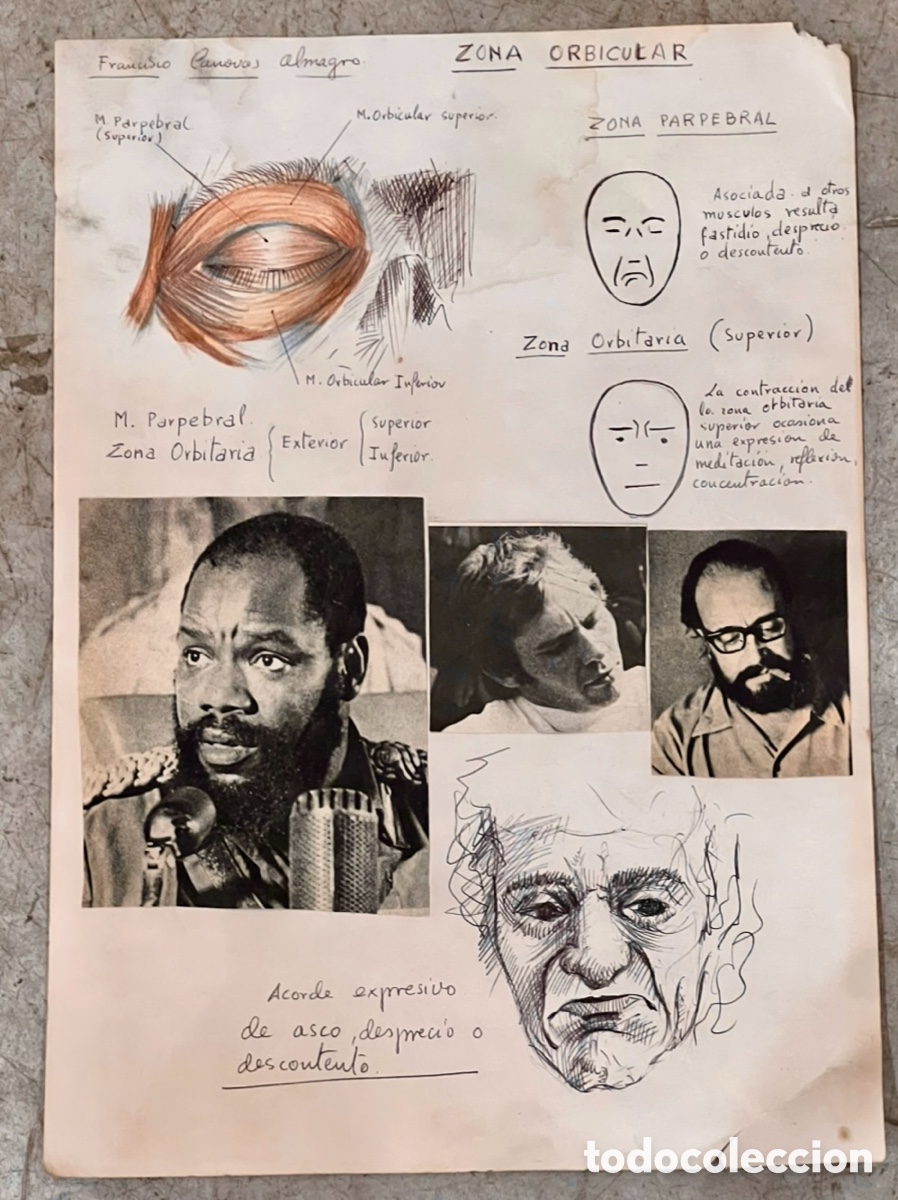 Francisco Canovas Almagro.
ZONA ORBICULAR
M. Parpebral
(Superior)
M. Orbicular superior.
ZONA PARPEBRAL
Asociada a otros
musculos resulta
fastidio, desprecio
o descontento.
Zona Orbitaria (Superior)
M. Orbicular Inferior
M. Parpebral.
Zona Orbitaria { Exterior { Superior
Inferior.
La contracción del
la zona orbitaria
superior ocasiona
una expresion de
meditación, reflexion,
concentración.
Acorde expresivo
de asco, desprecio o
descontento.
todocoleccion